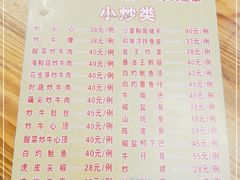 小炒类
炒牛心 38元/例
炒牛螺 38元/例
酸菜炒牛肉 40元/例
海鲜菇炒牛肉 40元/例
花生芽炒牛肉 40元/例
时蔬炒牛肉 40元/例
藕尖炒牛肉 40元/例
炒牛肚丝 45元/例
炒牛心顶 40元/例
酸菜炒牛心顶 40元/例
白灼鱿鱼 40元/例
虎皮尖椒 28元/例
40元/例
33元/例
韭王炒蛋 28元/例
酱油王鹅肠 40元/例
白灼鱿鱼须 40元/例
40元/例
40元/例
椒盐骨 40元/例
山坑鱼 40元/例
陈皮骨 40元/例
椒盐鸭下巴 45元/例
牛仔骨 55元/例
炒螺 28元/例